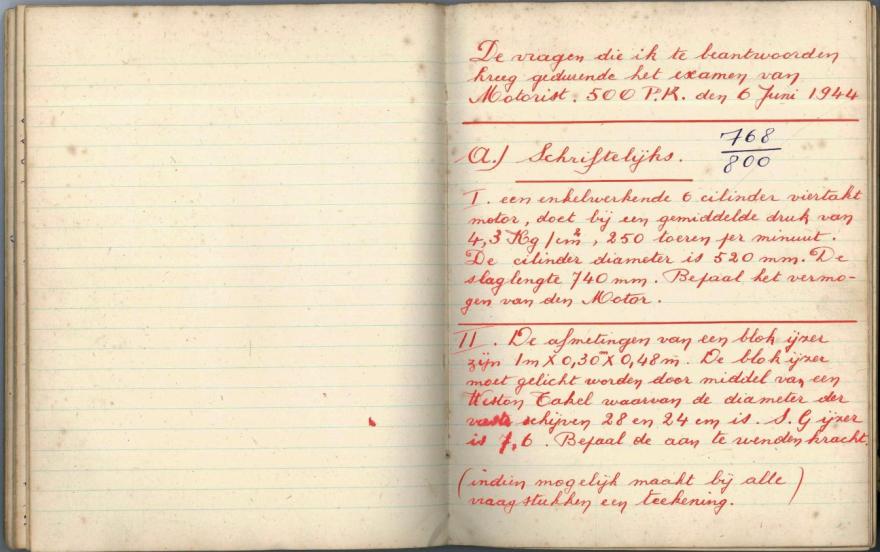 De vragen die ik te beantwoorden
kreeg gedurende het examen van
Motorist. 500 P.K. den 6 Juni 1944
A.) Schriftelijks. 768/800
I. een enkelwerkende 6 cilinder viertakt
motor, doet bij een gemiddelde druk van
4,3 Kg/cm², 250 toeren per minuut.
De cilinder diameter is 520 mm. De
slaglengte 740 mm. Bepaal het vermo-
gen van den Motor.
II. De afmetingen van een blok ijzer
zijn 1m X 0,30m X 0,48m. De blok ijzer
moet gelicht worden door middel van een
Weston Takel waarvan de diameter der
vaste schijven 28 en 24 cm is. S.G ijzer
is 7,6. Bepaal de aan te wenden kracht.
(indien mogelijk maakt bij alle
vraagstukken een teekening.)